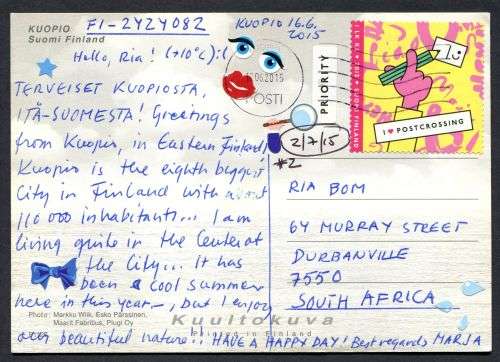 KUOPIO
Suomi Finland
FI-2424082
KUOPIO 16.6.
2015
Hello, Ria! (+10°C) :(
TERVEISET KUOPIOSTA,
ITÄ-SUOMESTA! Greetings
from Kuopio, in Eastern Finland!
Kuopio is the eighth biggest
City in Finland with about
110 000 inhabitants... I am
living quite in the Center of
the City... It has
been a cool summer
here in this year–, but I enjoy
our beautiful nature!! HAVE A HAPPY DAY! Best regards MARJA
Photo: Markko Wilk, Esko Pärssinen,
Maarit Fabritius, Plugi Oy
Kuultokuva
Printed in Finland
.06.2015
POSTI
PRIORITY
SUOMI FINLAND
I ♥ POSTCROSSING
2/7/15
#2
RIA BOM
64 MURRAY STREET
DURBANVILLE
7550
SOUTH AFRICA